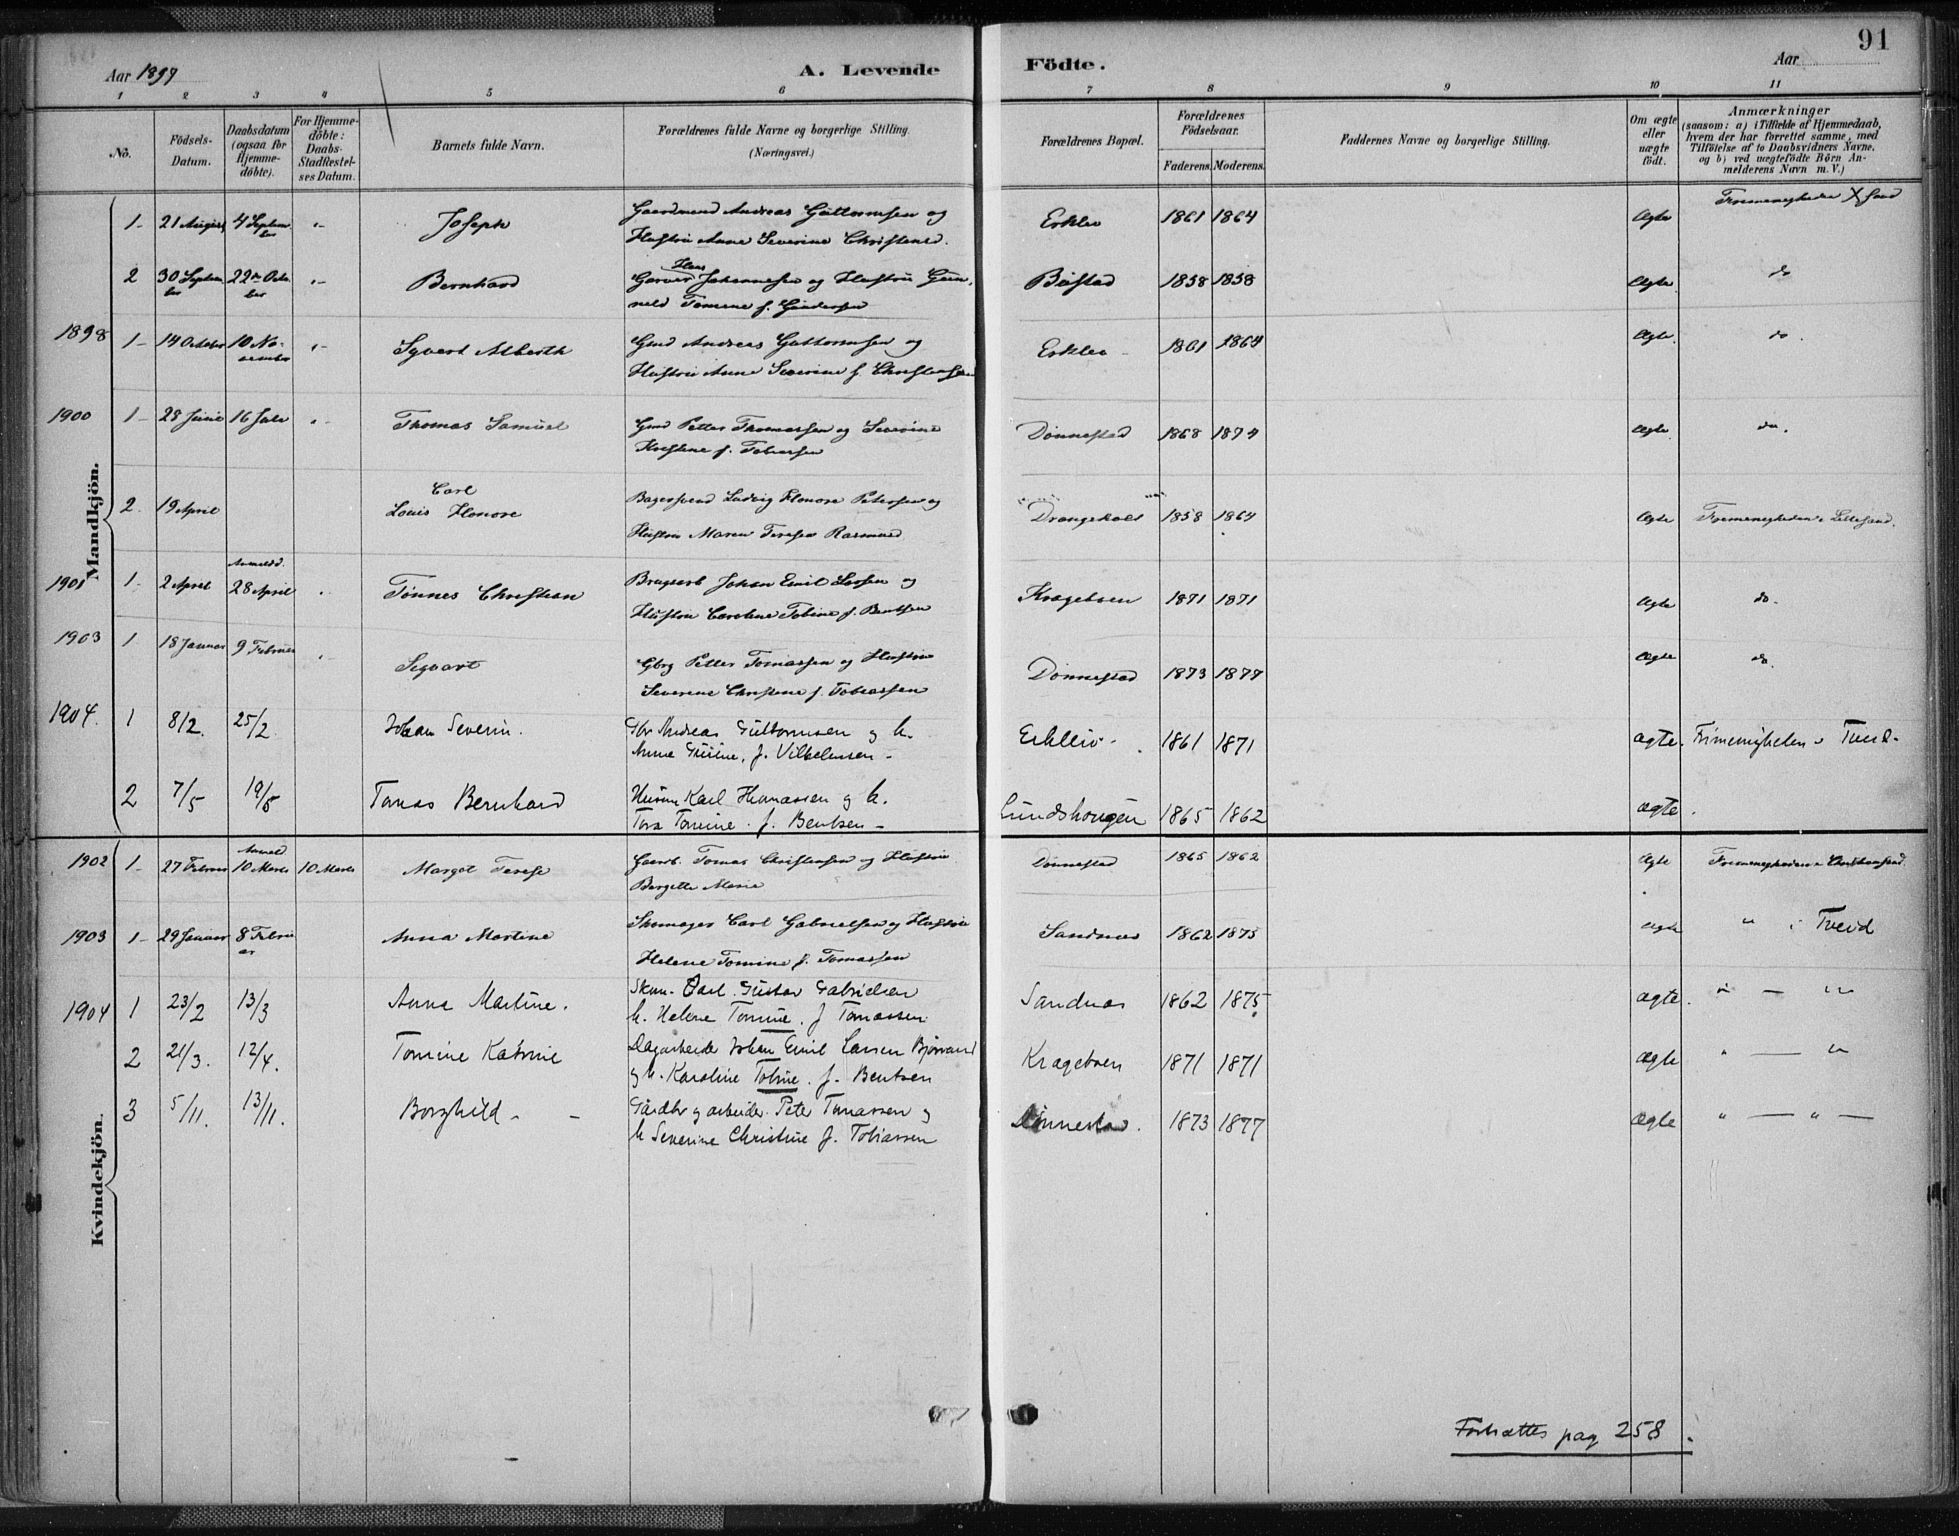 91
Aar 1897
A. Levende Födte.
Aar
1 2 3 4 5 6 7 8 9 10 11
Nö.
Födsels-Datum.
Daabsdatum (ogsaa for Hjemme-döbte).
For Hjemme-döbte: Daabs-Stadfæstel-ses Datum.
Barnets fulde Navn.
Forældrenes fulde Navne og borgerlige Stilling.
(Næringsvei.)
Forældrenes Bopæl.
Forældrenes Födselsaar.
Faderens. Moderens.
Faddernes Navne og borgerlige Stilling.
Om ægte eller uægte födt.
Anmærkninger
(saasom: a) i Tilfælde af Hjemmedaab, hvem der har forrettet samme, med Tilföielse af to Daabsvidners Navne, og b) ved uægtefödte Börn An-melderens Navn m. V.)
Mandkjön.
1- 21 August 4 Septem ber "- Joseph Gaardmand Andreas Guttormsen og Erklev 1861 1864 Ægte Frimenigheden X sand
Hustru Anne Severine Christensd.
2 30 Septem ber 22 Octo ber "- Bernhard Garver Hans Johannesen og Hustru Gun- Bustad 1858 1858 Ægte do
neld Tomine f. Gundersen
1898 1- 14 October 10 No- vember "- Syvert Alberth Gmd Andreas Guttormsen og Erklev - 1861 1864 Ægte. do.
Hustru Anne Severine f. Christensen
1900 1- 28 Juni 16 Juli "- Thomas Samuel Gmd Petter Thomassen og Severine Dönnestad 1868 1874 Ægte do.
Kristene f. Tobiassen
2. 19 April Carl Louis Honore Ludvig Honore Petersen og Drangeholt 1858 1864 Ægte Frimenigheden i Lillesand.
Hustru Maren Terese Rasmusd
1901 1- 2 April Anmeldt 28 April Tönnes Christian Johan Emil Larsen og Krageboen 1871 1871 Ægte do.
Hustru Caroline Tobine f. Bentsen
1903 1 18 Januar 9 Februar Sigvart Gbrg Petter Tomassen og Hustru Dönnestad 1873 1877 Ægte do.
Severine Christine f. Tobiassen
1904. 1 8/2. 25/2 Johan Severin. Gbr Andreas Guttormsen og h. Erklev - 1861 1871 ægte. Frimenigheden i Tveid-
Anne f. Vilhelmsen -
2 7/5 19/5 Tomas Bernhard Husm Karl Thomassen og h. Lundshougen 1865 1862 ægte.
Tora Tomine. f. Bentsen -
Kvindekjön.
1902 1- 27 Februar Anmeld 10 Marts 10 Marts Margot Terese Gaardb. Tomas Christensen og Hustru Dönnestad 1865 1862 Ægte Frimenigheden i Christiansand.
Bergitte Marie
1903 1- 29 Januar 8 Febru ar Anna Martine Skomager Carl Gabrielsen og Hustru Sandnes 1862 1875 Ægte " i Tveid
Helene Tomine f. Tomassen
1904 1 23/2 13/3 Anna Martine. Skom. Carl. Gustav Gabrielsen Sandnes 1862 1875 ægte. " — "
h. Helene Tomine. f Tomassen
2 21/3. 12/4. Tomine Katrine Dagarbeider Johan Emil Larsen Bjørvand Krageboen 1871 1871 ægte " — "
og h. Karoline Tobine. f. Bentsen
3 5/11. 13/11. Borghild - - Gårdbr og arbeider. Peter Tomassen og Dönnestad. 1873 1877 ægte " — " —
h Severine Christine f. Tobiassen
Fortsættes pag 258.